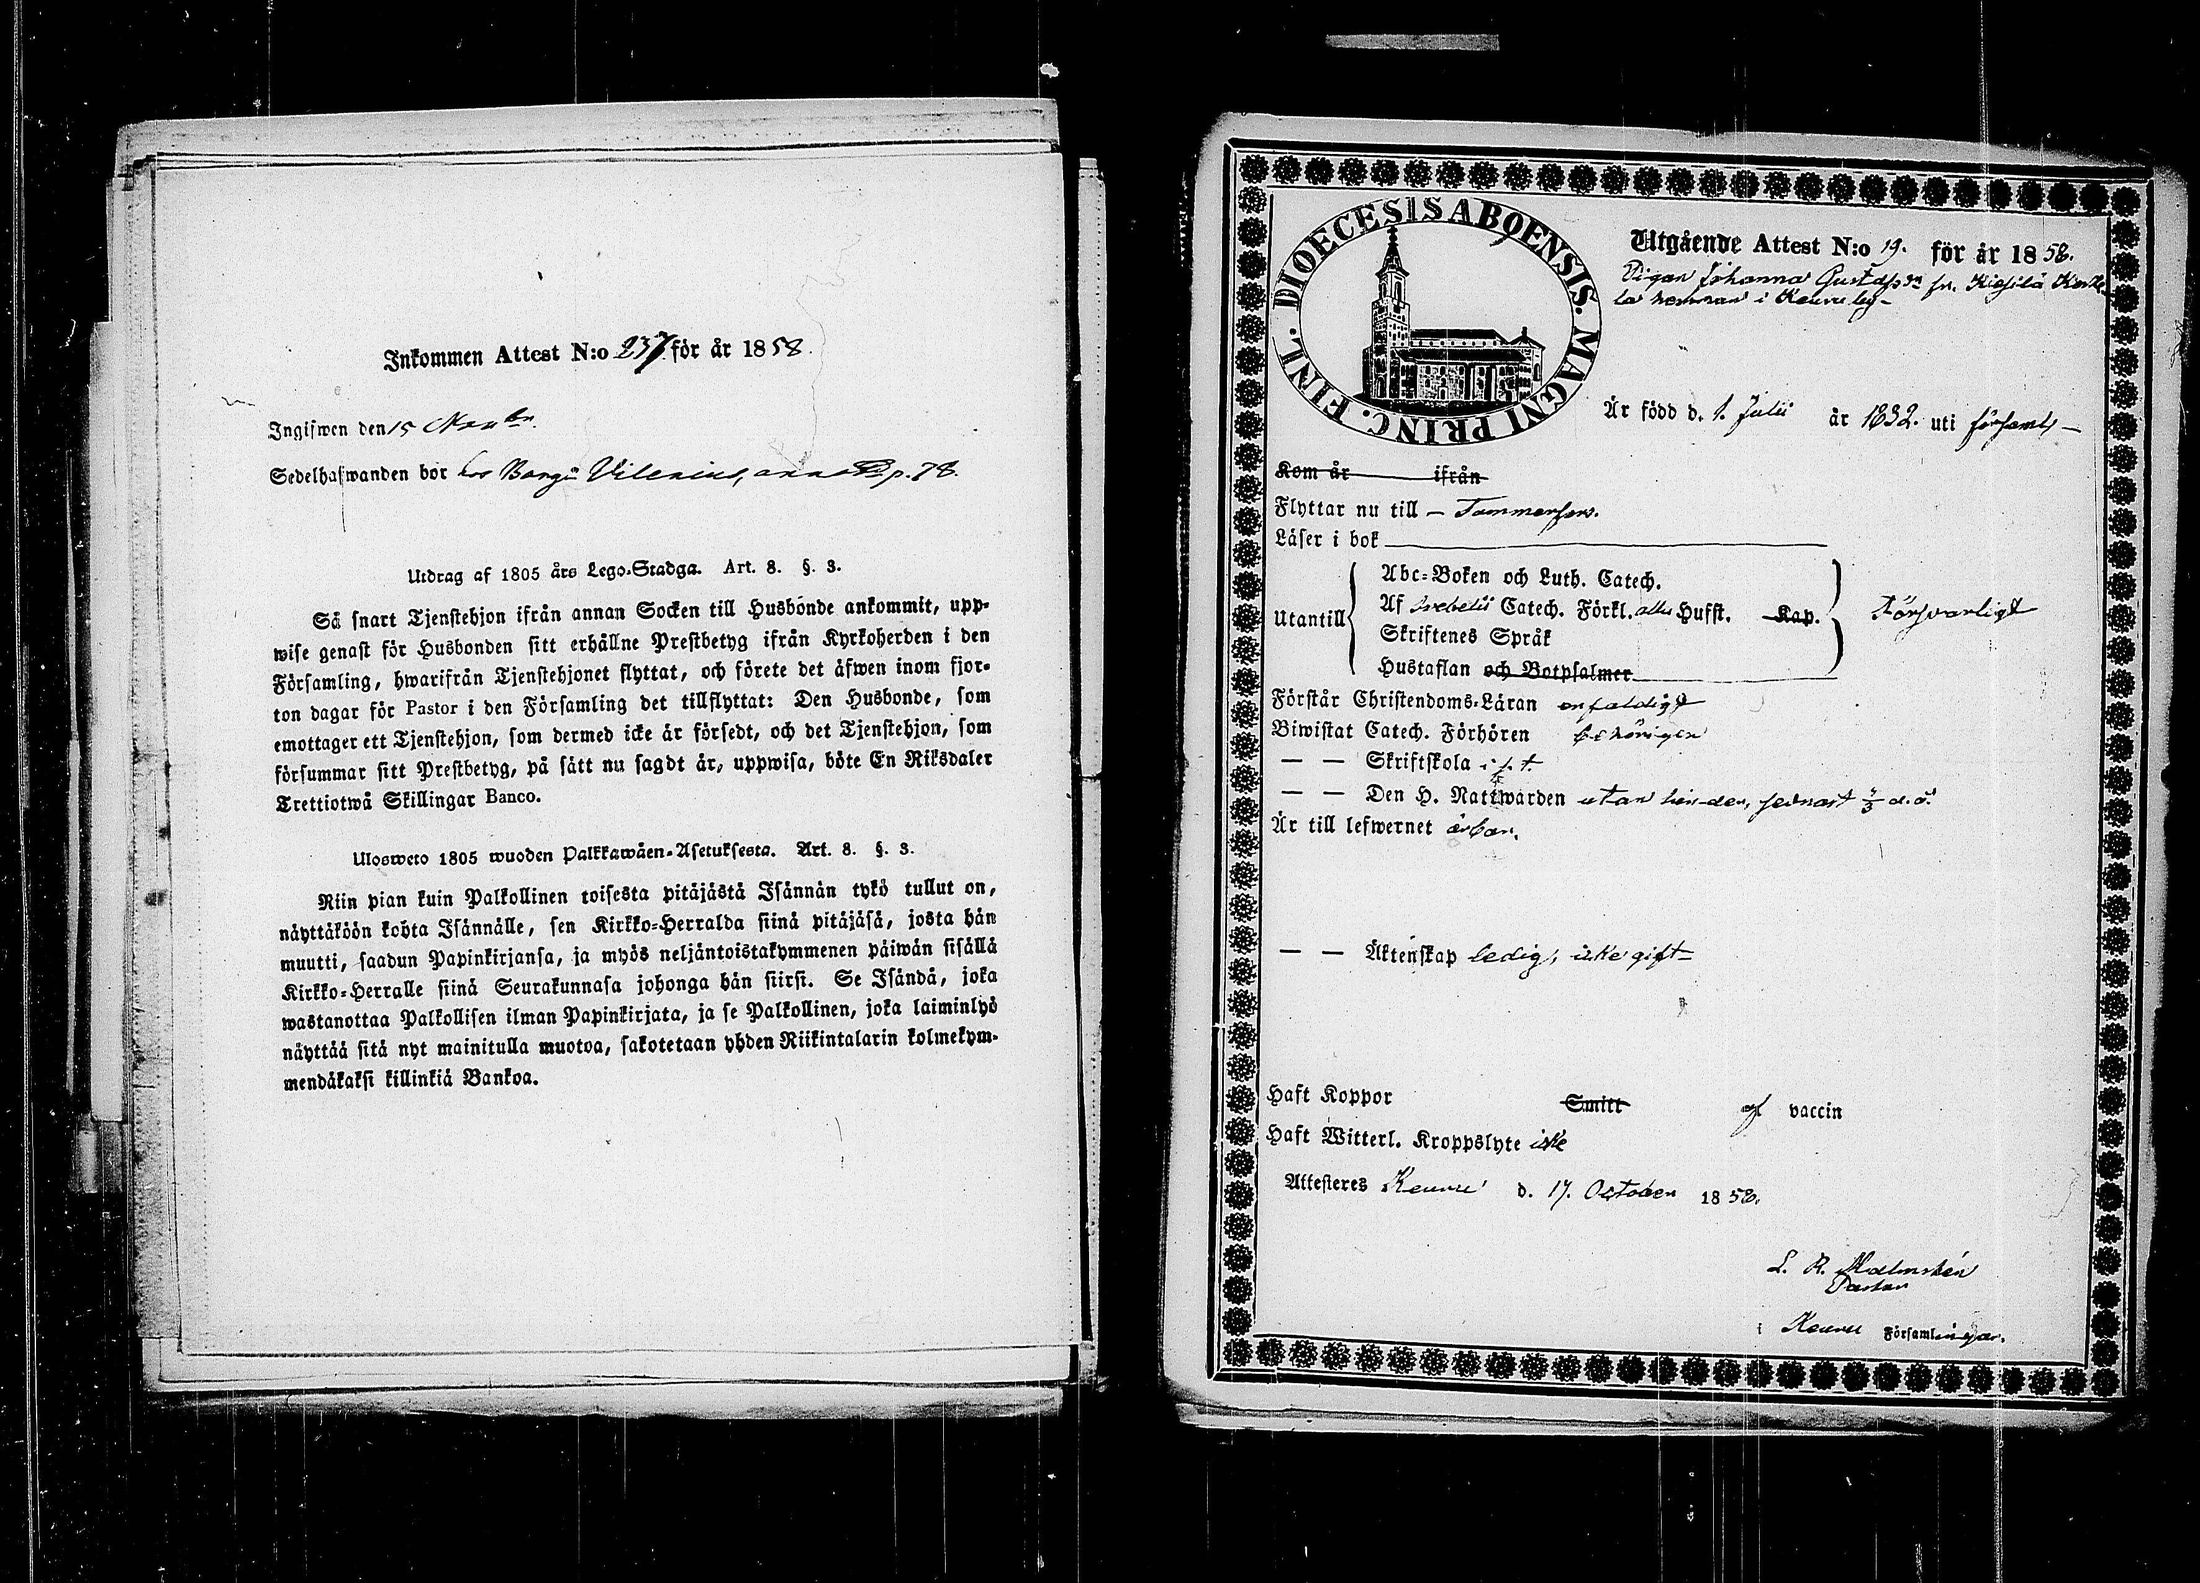 Inkommen Attest N:o 237 för år 1858.
Ingifwen den 15 Novbr.
Sedelhafwanden bor hos Borg. Vilenius, p. 78.
Utdrag af 1805 års Lego-Stadga. Art. 8. §. 3.
Så snart Tjenstehjon ifrån annan Socken till Husbonde ankommit, upp-
wise genast för Husbonden sitt erhållne Prestbetyg ifrån Kyrkoherden i den
Församling, hwarifrån Tjenstehjonet flyttat, och förete det äfwen inom fjor-
ton dagar för Pastor i den Församling det tillflyttat: Den Husbonde, som
emottager ett Tjenstehjon, som dermed icke är försedt, och det Tjenstehjon, som
försummar sitt Prestbetyg, på sätt nu sagdt är, uppwisa, böte En Riksdaler
Trettiotwå Skillingar Banco.
Ulosweto 1805 wuoden Palkkawäen-Asetuksesta. Art. 8. §. 3.
Niin pian kuin Palkollinen toisesta pitäjästä Isännän tykö tullut on,
näyttäköön kohta Isännälle, sen Kirkko-Herralda siinä pitäjäsä, josta hän
muutti, saadun Papinkirjansa, ja myös neljäntoistakymmenen päiwän sisällä
Kirkko-Herralle siinä Seurakunnasa johonga hän siirsi. Se Isändä, joka
wastanottaa Palkollisen ilman Papinkirjata, ja se Palkollinen, joka laiminlyö
näyttää sitä nyt mainitulla muotoa, sakotetaan yhden Riikintalarin kolmekym-
mendäkaksi killinkiä Bankoa.
DIOECESIS ABOENSIS. MAGNI PRINC. FINL.
Utgående Attest N:o 19. för år 1858.
Pigan Johanna Gustafsdr fr.
hemman i Keuru by
Är född d. 1. Julii år 1832. uti församl
Kom år ifrån
Flyttar nu till Tammerfors.
Läser i bok
Abc-Boken och Luth. Catech.
Utantill Af Svebelii Catech. Förkl. alla Hufst. Kap. Försvarligt
Skriftenes Språk
Hustaflan och Botpsalmer
Förstår Christendoms-Läran enfaldigt
Biwistat Catech. Förhören behörigen
— — Skriftskola
— — Den H. Nattwarden utan hinder, sednast d. å.
Är till lefwernet ärbar.
— — Äktenskap ledig, icke gift
Haft Koppor Smitt af vaccin
Haft Witterl. Kroppslyte icke
Attesteres Keuru d. 17. October 1858.
L. R. Malmstén
Pastor
i Keuru Församlingar.